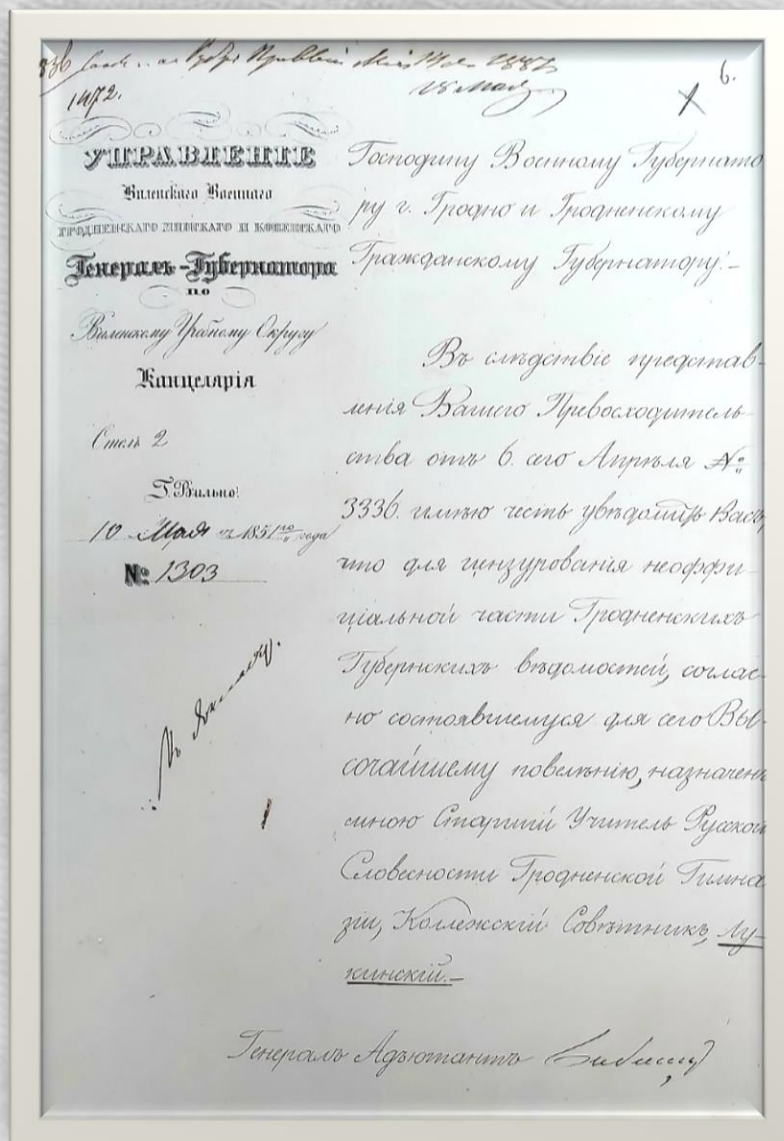 1472.
6.
УПРАВЛЕНІЕ
Виленскаго Военнаго
ГРОДНЕНСКАГО МИНСКАГО И КОВЕНСКАГО
Генералъ-Губернатора
ПО
Виленскому Учебному Округу
Канцелярія
Столъ 2
Г. Вильно.
10 Мая 1851го года
№ 1303
Господину Военному Губернато
ру г. Гродно и Гродненскому
Гражданскому Губернатору.-
Въ слѣдствіе представ-
ленія Вашего Превосходитель-
ства отъ 6. сего Апрѣля №
3336. имѣю честь увѣдомить Васъ,
что для цензурованія неоффи-
ціальной части Гродненскихъ
Губернскихъ вѣдомостей, соглас-
но состоявшемуся для сего ВЫ-
СОЧАЙШЕМУ повелѣнію, назначенъ
мною Старшій Учитель Русской
Словесности Гродненской Гимна
зіи, Коллежскій Совѣтникъ, Лу-
кинскій.-
Генералъ Адъютантъ Бибиковъ